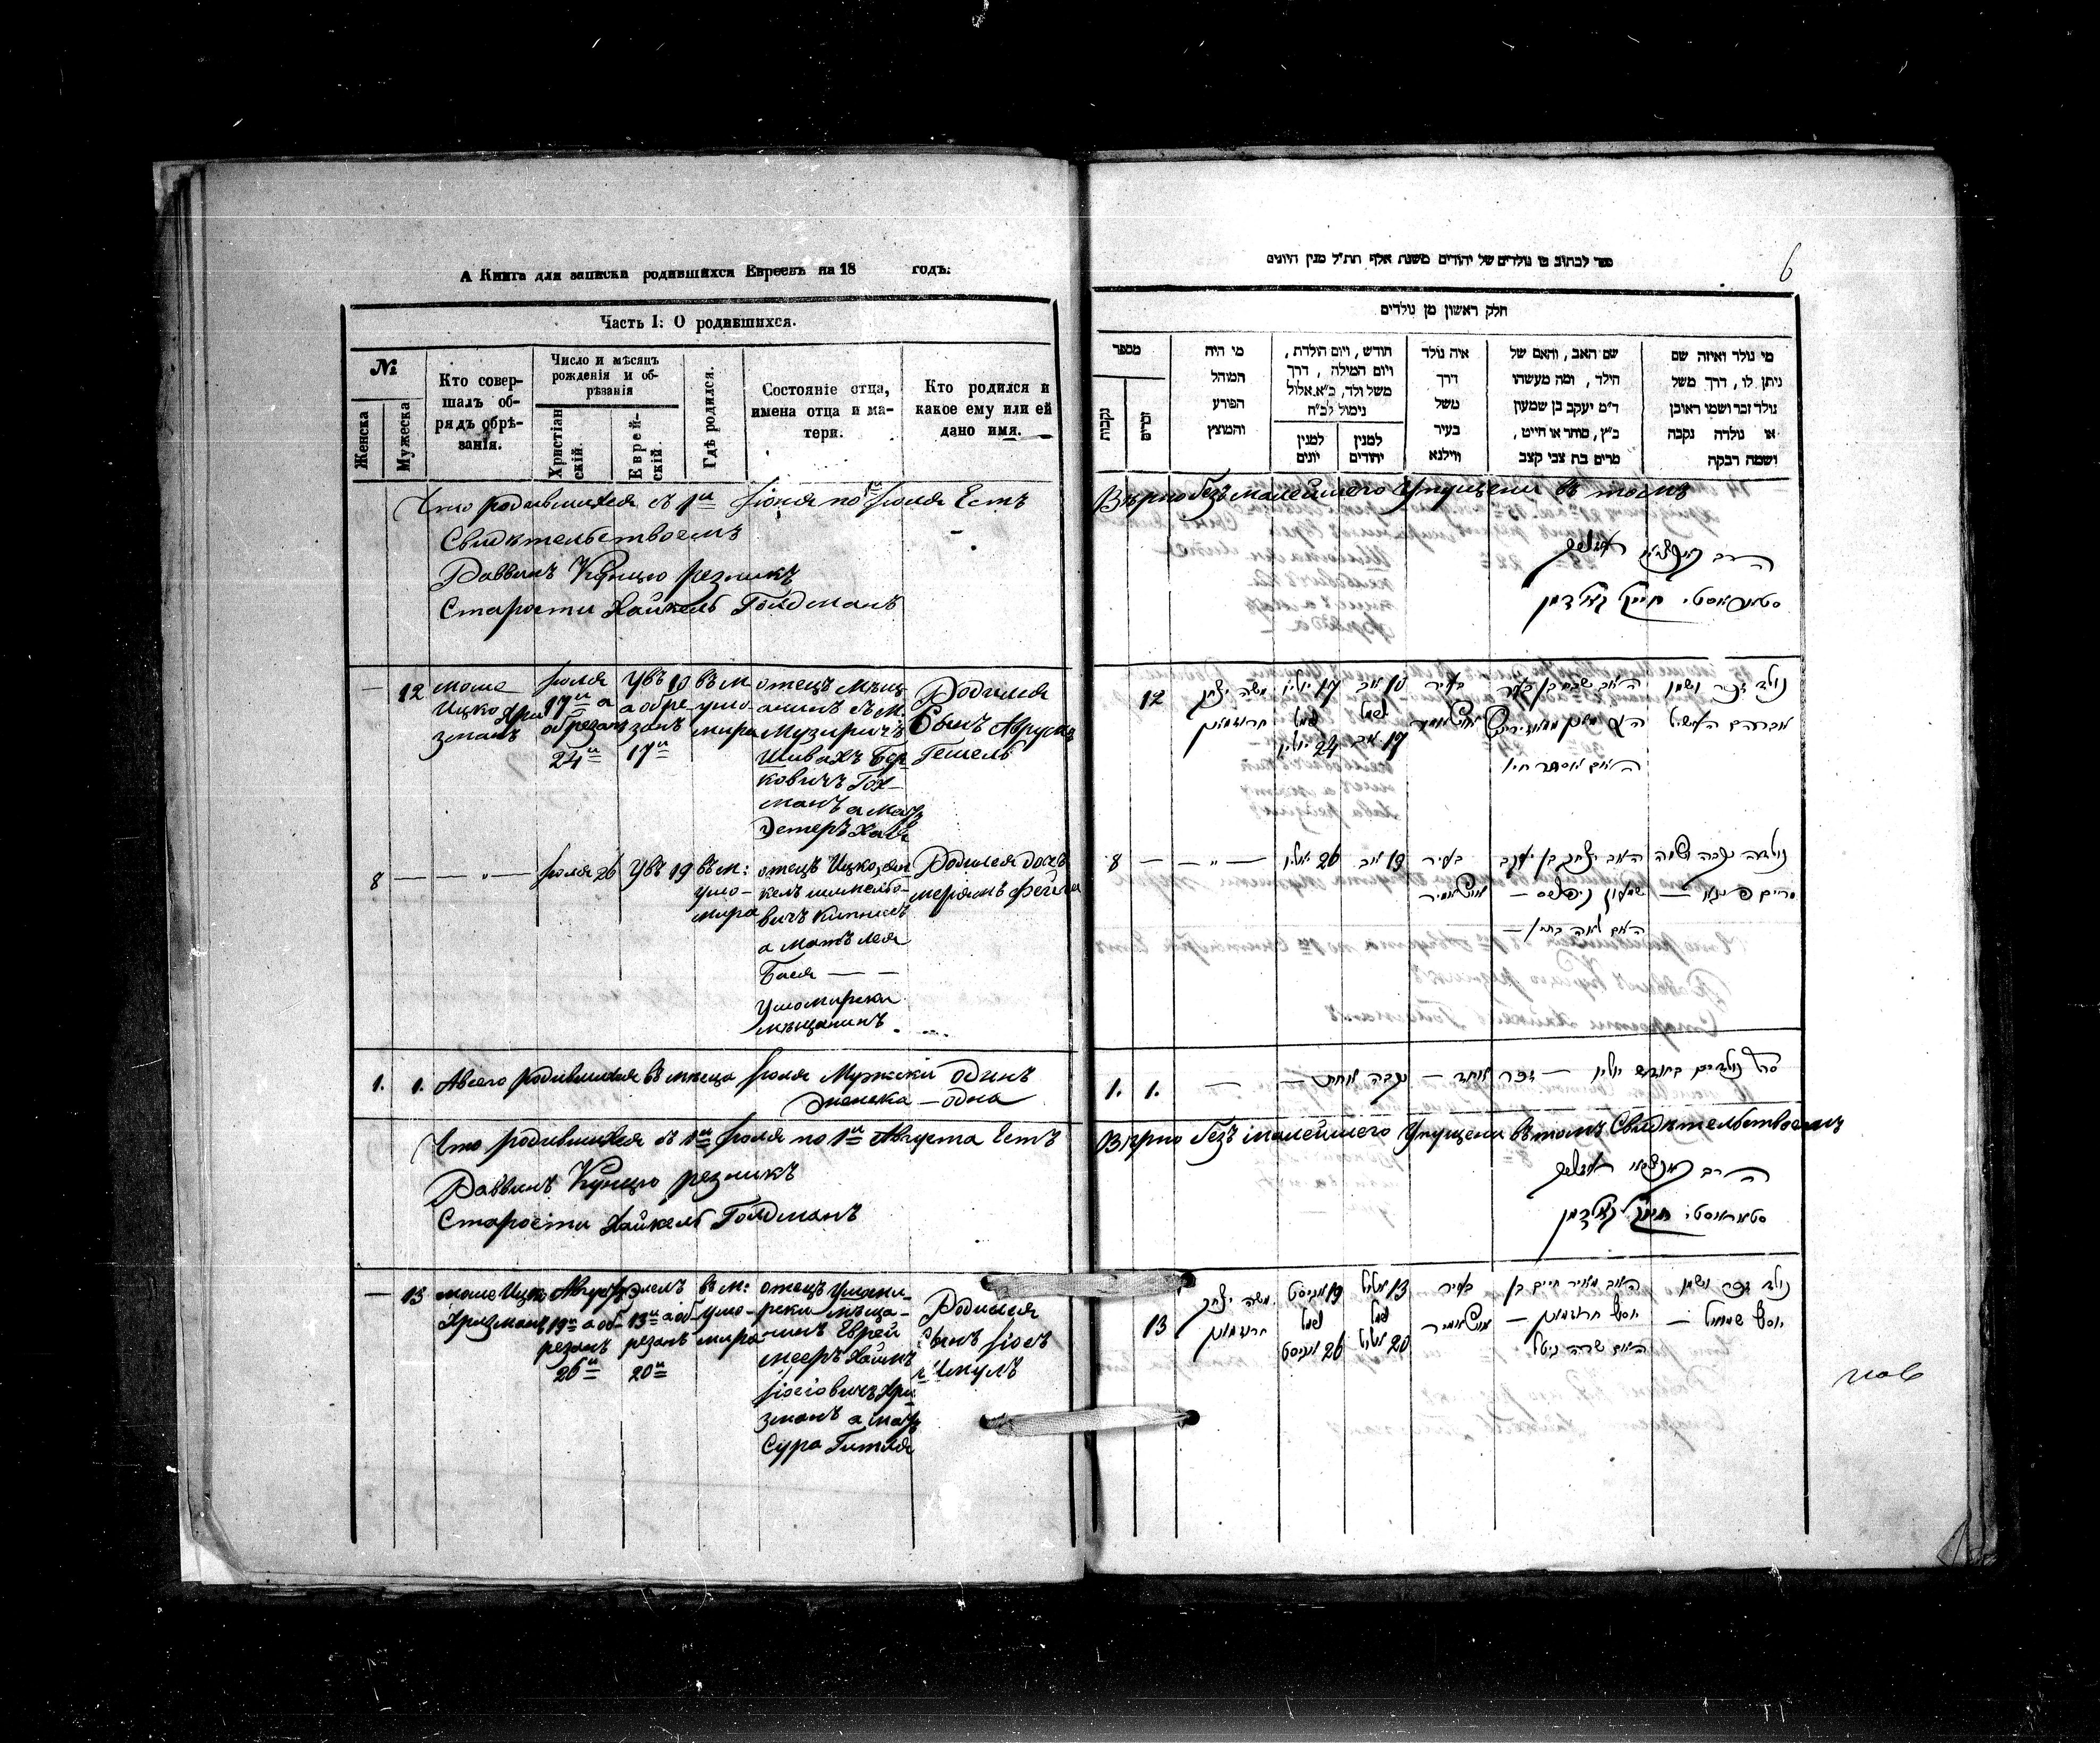 А Книга для записки родившихся Евреевъ на 18 годъ.
Часть I: О родившихся.
№
Женска
Мужеска
Кто совер-
шалъ об-
рядъ обрѣ-
занія.
Число и мѣсяцъ
рожденія и об-
рѣзанія
Христіан
скій.
Еврей-
скій.
Гдѣ родился.
Состояніе отца,
имена отца и ма-
тери.
Кто родился и
какое ему или ей
дано имя.
Что родившихся съ 1и Іюня по Іюля Естъ
Свидѣтельствоемъ
Раввинъ резникъ
Старости Хайкель Голдманъ
—
12
моше
Ицко Хри
зманъ
Іюля
17и а
обрезанъ
24и
Увъ 10
а обре
занъ
17и
въ м
ушо-
мира
отецъ мѣщ
анинъ съ м.
Музиричъ
Шивахъ Бер
ковичъ Гох-
манъ а мать
Эстеръ Хая
Родился
Сынъ Аврумъ
Гешель
8
— — „ —
Іюля 26
Увъ 19
въ м:
ушо-
мира
отецъ Ицко, ян
кель шмельо-
вичъ
а мать лея
Бася — —
Ушомирски
мѣщанинъ
Родился дочь
меріамъ фейга
1. 1. Авсего родившихся въ месеца Іюля Мужски одинъ
Женска — одна
Что родившихся съ 1и Іюля по 1и Августа Естъ
Раввинъ резникъ
Старости Хайкель Голдманъ
—
13
моше Ицко
Хризманъ
Августъ
19и а об
резанъ
26и
Элелъ
13и а об-
резанъ
20и
въ м:
ушо-
мира
отецъ Ушоми-
рски мѣща-
нинъ Еврей
мееръ Хаимъ
Іосіовичъ Хри
зманъ а мать
Сура Гитля
Родился
Сынъ Іосъ
ч Шмулъ
6
ספר לכתוב בו נולדים של יהודים משנת אלף תת״ל מנין היונים
חלק ראשון מן נולדים
מספר
נקבות
זכרים
מי היה
המוהל
הפורע
והמוצץ
חודש, ויום הולדת,
ויום המילה, דרך
משל ולד, כ״א.אלול
נימול לכ״ח
למנין
יונים
למנין
יהודים
איה נולד
דרך
משל
בעיר
ווילנא
שם האב, והאם של
הילד, ומה מעשהו
ד״מ יעקב בן שמעון
כ״ץ, סוחר או חייט,
מרים בת צבי קצב
מי נולד ואיזה שם
ניתן לו, דרך משל
נולד זכר ושמו ראובן
או נולדה נקבה
ושמה רבקה
Вѣрно безъ малейшего Упущени въ томъ
הרב
חייקל גאלדמן
12
משה יצחק
חריזמאן
17 יוליו
נימול
24 יוליו
10 אב
נימול
17 אב
בעיר
אושאמיר
האם אסתר חיי
נולד זכר ושמו
אברהם העשיל
8 — — „ —
26 יוליו
19 אב
בעיר
אושאמיר
האב יצחק בן יעקב
האם לאה בתי׳ —
נולדה נקבה ושמה
מרים פייגא —
1. 1. —
סהכ נולדים בחודש יוליו — זכר אחד — נקבה אחת —
Вѣрно безъ малейшего Упущени въ томъ Свидѣтельствоемъ
הרב
חייקל גאלדמן
13
משה יצחק
חריזמאן
19 אגוסט
נימול
26 אגוסט
13 אלול
נימול
20 אלול
בעיר
אושאמיר
האב מאיר חיים בן
יוסף חריזמאן —
האם שרה גיטל
נולד זכר ושמו
יוסף שמואל —